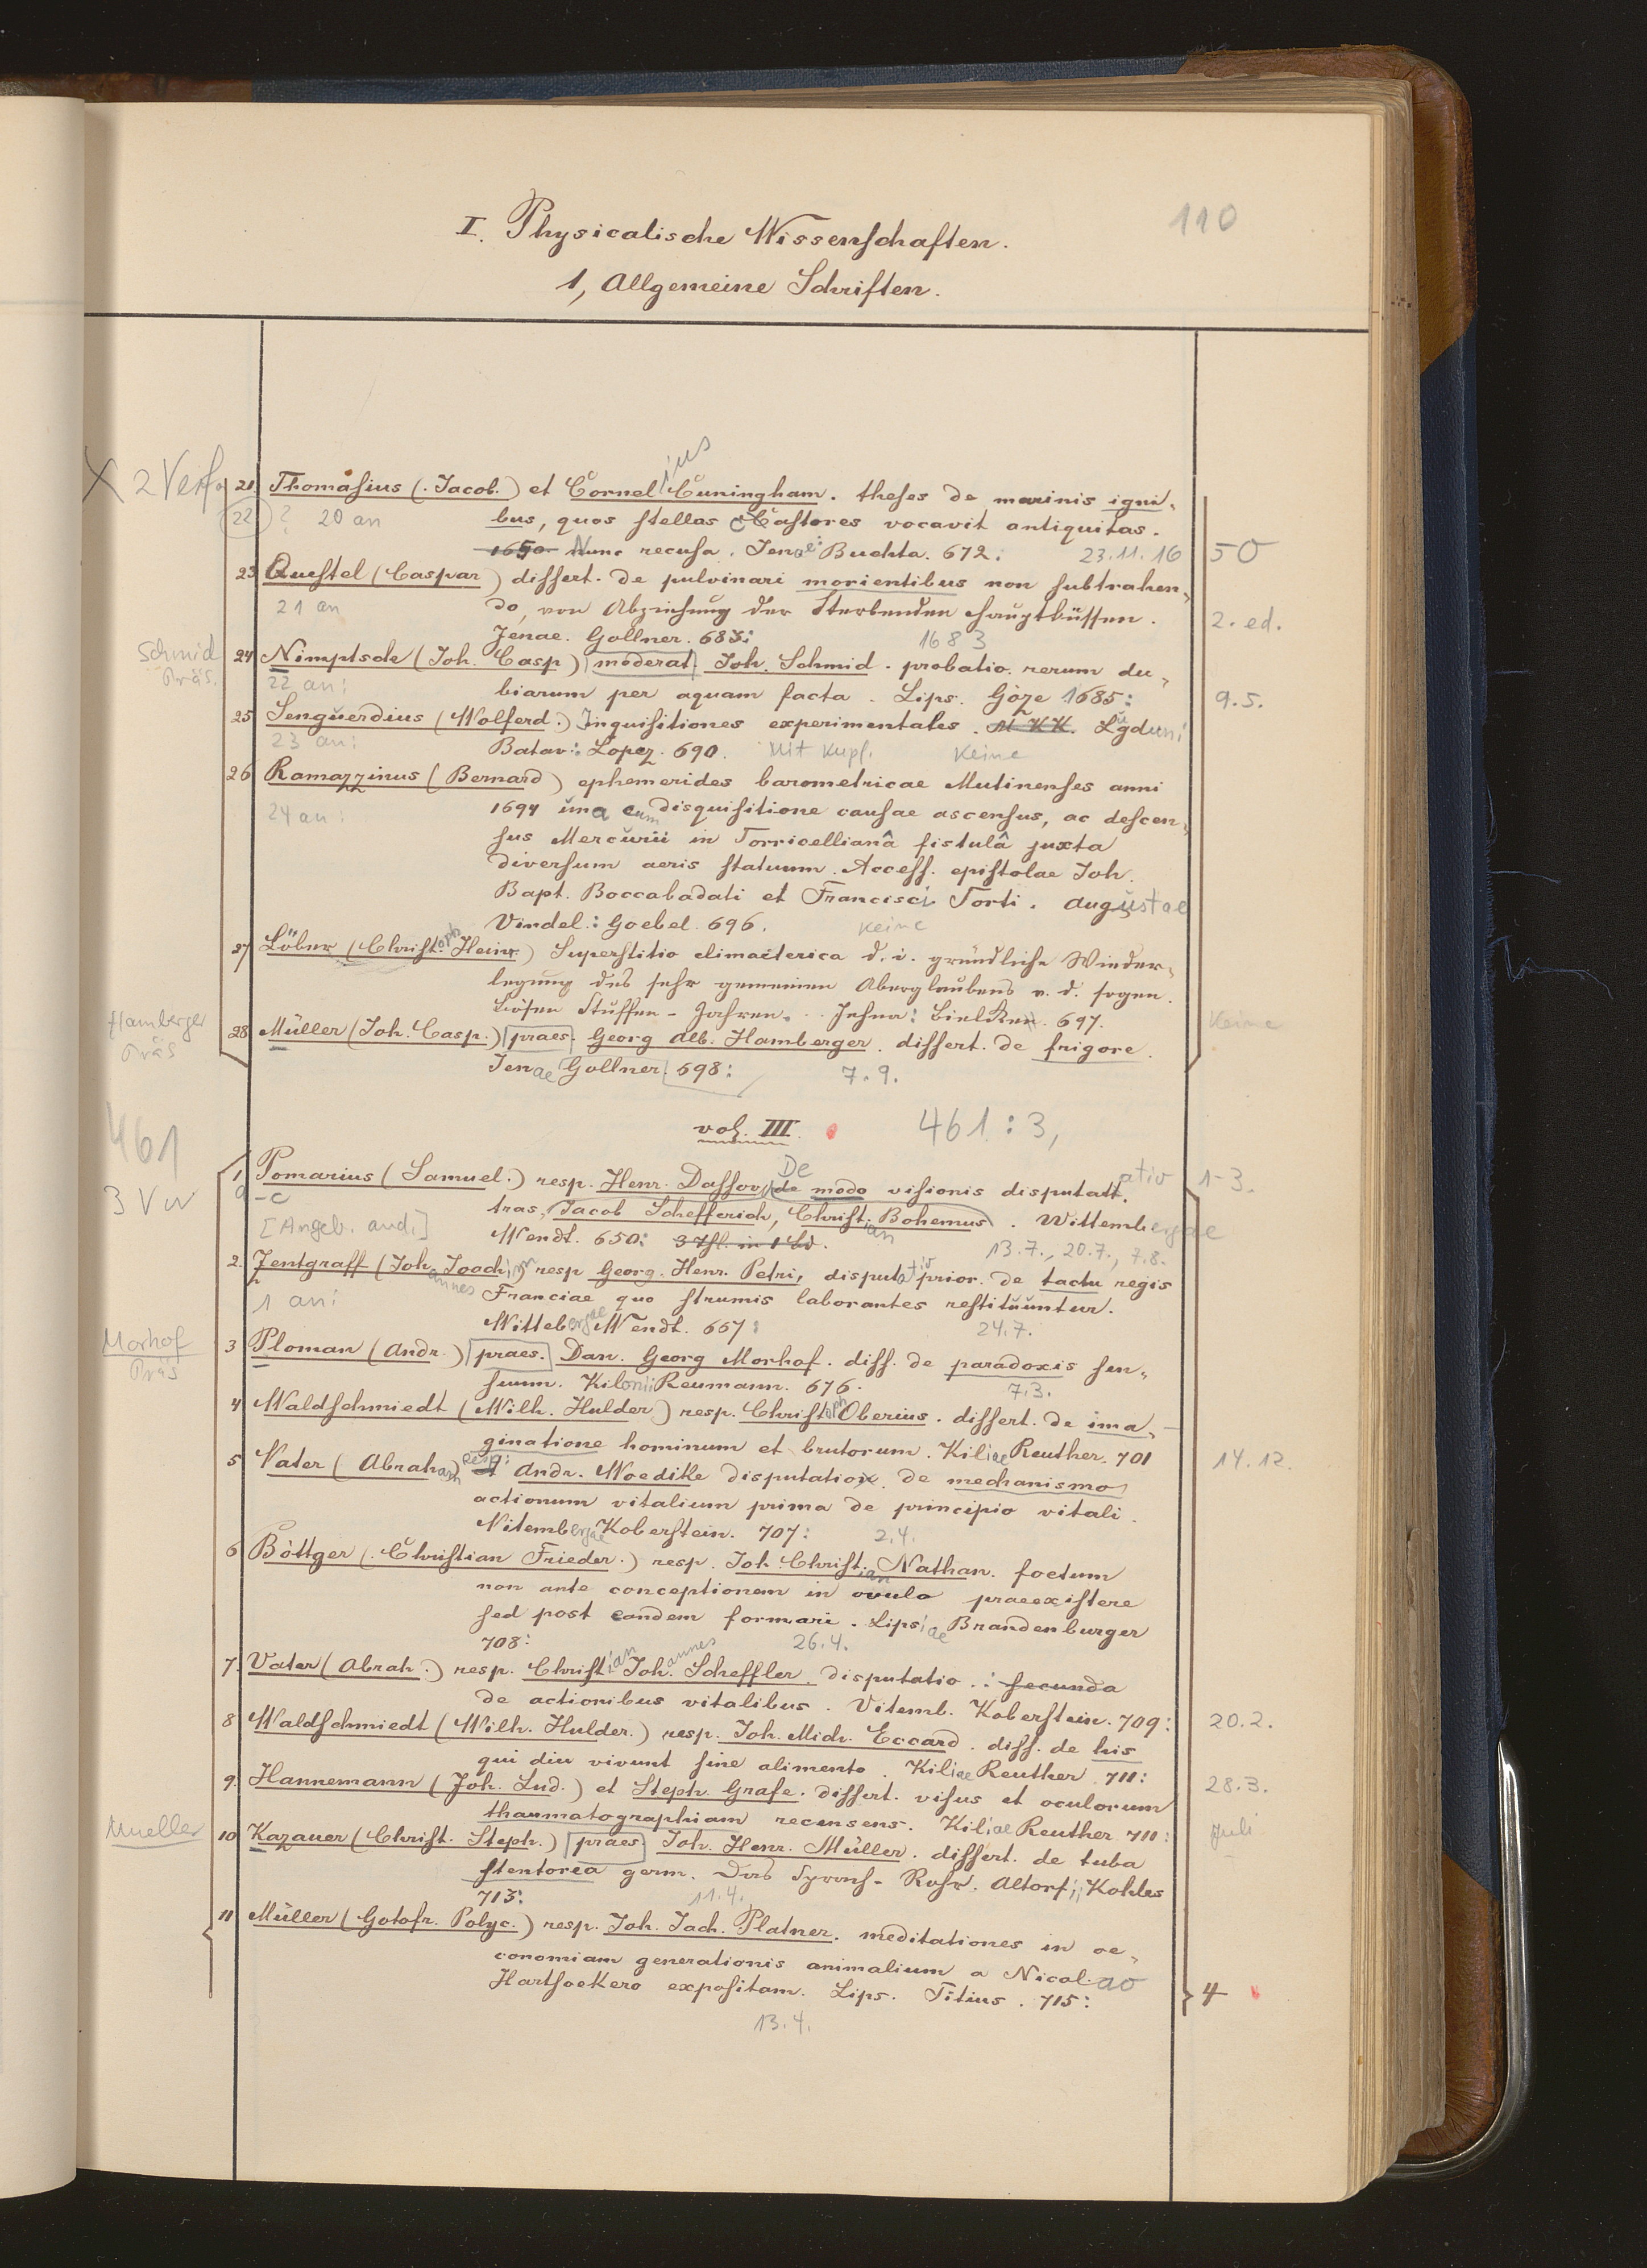 110
I. Physicalische Wissenschaften.
1, Allgemeine Schriften.
X 2 Verf. 21 Thomasius (Jacob.) et Cornelius Cuningham. theses de marinis igni-
22 ? 20 an bus, quos stellas Castores vocavit antiquitas.
1650 Nunc recusa. Jenae: Buchta. 672: 23.11.16 50
23 Questel (Caspar) dissert. de pulvinari morientibus non subtrahen-
21 an do, von Abziehung der Sterbenden Hauptküssen. 2. ed.
Jenae. Gollner. 683: 1683
Schmid Präs. 24 Nimptsch (Joh. Casp) moderat. Joh. Schmid. probatio rerum du-
22 an: biarum per aquam facta. Lips. Göze 1685: 9.5.
25 Senguerdius (Wolferd.) Inquisitiones experimentales. M. KK. Lugduni
23 an: Batav: Lopez. 690. Mit Kupf. Keine
26 Ramazzinus (Bernard) ephemerides barometricae Mutinenses anni
24 an: 1694 una cum disquisitione causae ascensus, ac descen-
sus Mercurii in Torricellianâ fistulâ juxta
diversum aeris statuum. Access. epistolae Joh.
Bapt. Boccabadati et Francisci Torti. Augustae
Vindel.: Goebel. 696. Keine
27 Löber (Christoph Heinr.) Superstitio climacterica d. i. gründliche Wieder-
legung des sehr gemeinen Aberglaubens v. d. sogen.
bösen Stuffen-Jahren. Jehna: Bielken. 697. Keine
Hamberger Präs 28 Müller (Joh. Casp.) praes. Georg Alb. Hamberger. dissert. de frigore.
Jenae Gollner. 698: 7.9.
vol. III. 461:3,
461
1 Pomarius (Samuel.) resp. Henr. Dassov, De de modo visionis disputatt. ativ 1-3.
3 Vw a-c tras, Jacob Schefferich, Christian Bohemus. Wittembergae
[Angeb. and.] Wendt. 650: 3 Thl. in 1 Bd. 13.7., 20.7., 7.8.
2. Zentgraff (Johannes Joachim) resp Georg. Henr. Petri, disputatio prior. de tactu regis
1 an: Franciae quo strumis laborantes restituuntur.
Wittebergae Wendt. 667: 24.7.
Morhof Präs 3 Ploman (Andr.) praes. Dan. Georg Morhof. diss. de paradoxis sen-
suum. Kilonii Reumann. 676. 7.3.
4 Waldschmiedt (Wilh. Hulder) resp. Christoph Oberius. dissert. de ima-
ginatione hominum et brutorum. Kiliae Reuther. 701 14.12.
5 Vater (Abraham) resp: et Andr. Woedike disputatio de mechanismo
actionum vitalium prima de principio vitali.
Vitembergae Koberstein. 707: 2.4.
6 Böttger (Christian Frieder.) resp. Joh. Christian Nathan. foetum
non ante conceptionem in ovulo praeexistere
sed post eandem formari. Lipsiae Brandenburger
708: 26.4.
7. Vater (Abrah.) resp. Christian Johannes Scheffler. disputatio.: secunda
de actionibus vitalibus. Vitemb. Koberstein. 709: 20.2.
8 Waldschmiedt (Wilh. Hulder.) resp. Joh. Mich. Eccard. diss. de his
qui diu vivunt sine alimento. Kiliae Reuther. 711: 28.3.
9. Hannemann (Joh. Lud.) et Steph. Grafe. dissert. visus et oculorum
thaumatographiam recensens. Kiliae Reuther. 711: Juli
Mueller 10 Kazauer (Christ. Steph.) praes. Joh. Henr. Müller. dissert. de tuba
stentorea germ. Das Sprach-Rohr. Altorfii Kohles
713: 11.4.
11 Müller (Gotofr. Polyc.) resp. Joh. Zach. Platner. meditationes in oe-
conomiam generationis animalium a Nicolao
Hartsoekero expositam. Lips. Titius. 715: 4
13.4.